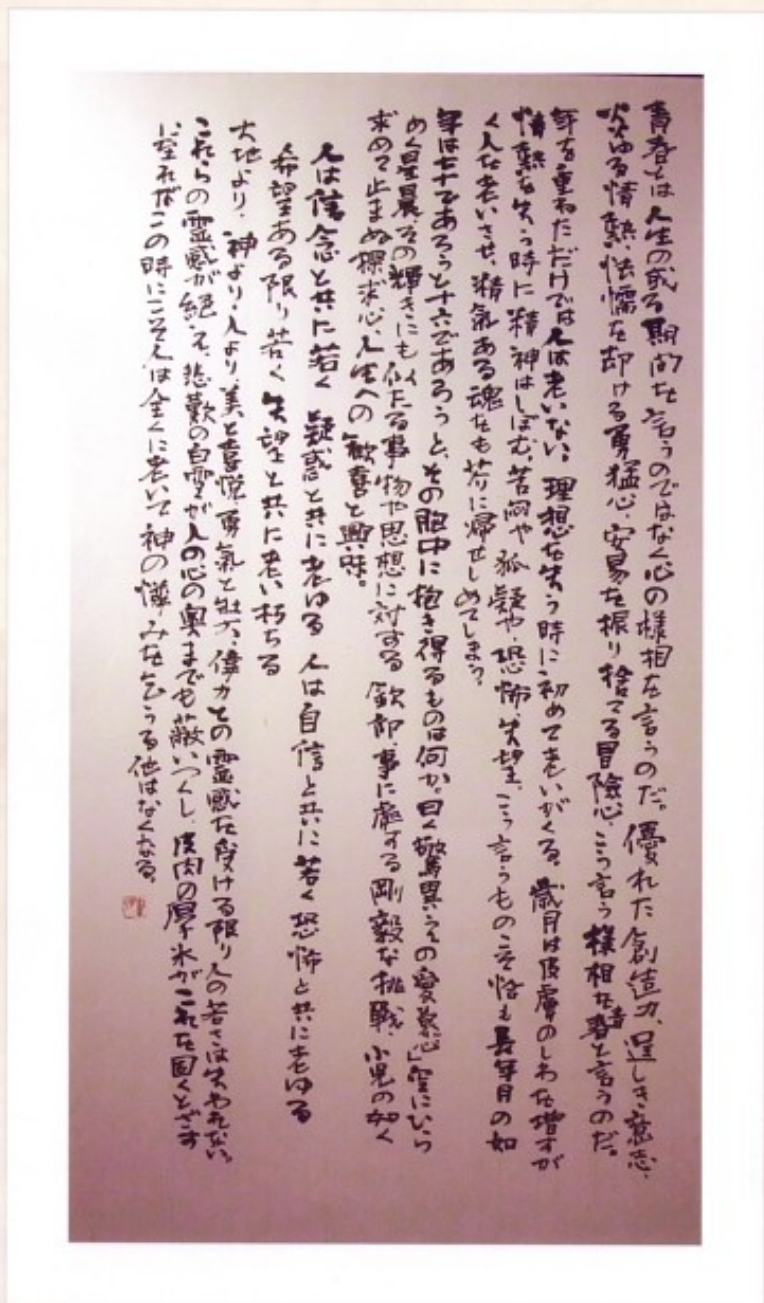 青春とは人生の或る期間を言うのではなく心の様相を言うのだ。優れた創造力、逞しき意志、
炎ゆる情熱、怯懦を却ける勇猛心、安易を振り捨てる冒険心、こう言う様相を青春と言うのだ。
年を重ねただけでは人は老いない。理想を失う時に初めて老いがくる。歳月は皮膚のしわを増すが
情熱を失う時に精神はしぼむ。苦悶や狐疑や、恐怖、失望、こう言うものこそ恰も長年月の如
く人を老いさせ、精気ある魂をも芥に帰せしめてしまう。
年は七十であろうと十六であろうと、その胸中に抱き得るものは何か。曰く驚異への愛慕心」空にひら
めく星晨、その輝きにも似たる事物や思想に対する欽仰、事に處する剛毅な挑戦、小児の如く
求めて止まぬ探求心、人生への歓喜と興味。
人は信念と共に若く 疑惑と共に老ゆる 人は自信と共に若く 恐怖と共に老ゆる
希望ある限り若く 失望と共に老い朽ちる
大地より、神より、人より、美と喜悦、勇氣と壮大、偉力との霊感を受ける限り人の若さは失われない。
これらの霊感が絶え、悲歎の白雪が人の心の奥までも蔽いつくし、皮肉の厚氷がこれを固くとざす
に至ればこの時にこそ人は全くに老いて神の憐みを乞うる他はなくなる。